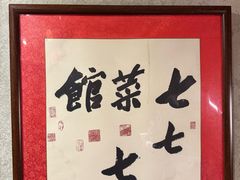 七七
菜七
館